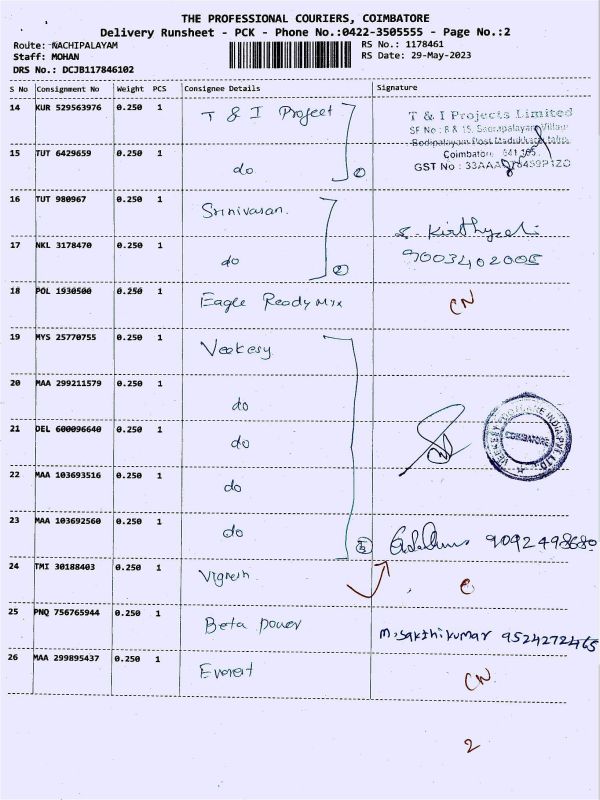 THE PROFESSIONAL COURIERS, COIMBATORE
Delivery Runsheet - PCK - Phone No.:0422-3505555 - Page No.:2
Route: NACHIPALAYAM
RS No.: 1178461
Staff: MOHAN
RS Date: 29-May-2023
DRS No.: DCJB117846102
S No Consignment No Weight PCS Consignee Details Signature
14 KUR 529563976 0.250 1 T & I Project
T & I Projects Limited
SF No : 8 & 15,
Coimbatore 641 105.
GST No :
15 TUT 6429659 0.250 1 do 2
16 TUT 980967 0.250 1 Srinivasan.
17 NKL 3178470 0.250 1 do 2 9003402005
18 POL 1930500 0.250 1 Eagle Ready Mix CN
19 MYS 25770755 0.250 1 Veekesy
20 MAA 299211579 0.250 1 do
21 DEL 600096640 0.250 1 do
COIMBATORE
22 MAA 103693516 0.250 1 do
23 MAA 103692560 0.250 1 do 5 9092498680
24 TMI 30188403 0.250 1 Vignesh.
25 PNQ 756765944 0.250 1 Beta power M.Sakthikumar 9524272465
26 MAA 299895437 0.250 1 Everest CN
2